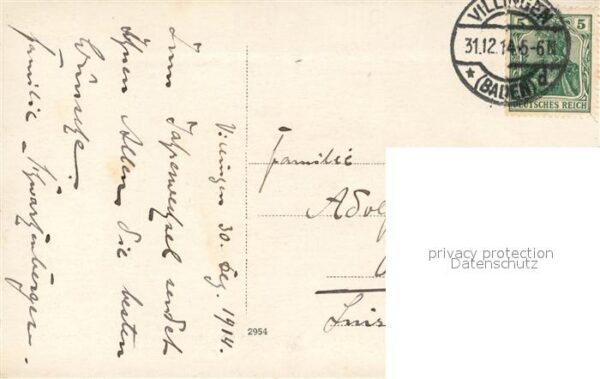 Villingen 30. Dez. 1914.
Zum Jahreswechsel sendet
Ihnen Allen die besten
Wünsche!
Familie Schwarzenberger.
Familie
Adol
2954
VILLINGEN
31.12.14.5-6N
* (BADEN) d
5 5
DEUTSCHES REICH
privacy protection
Datenschutz